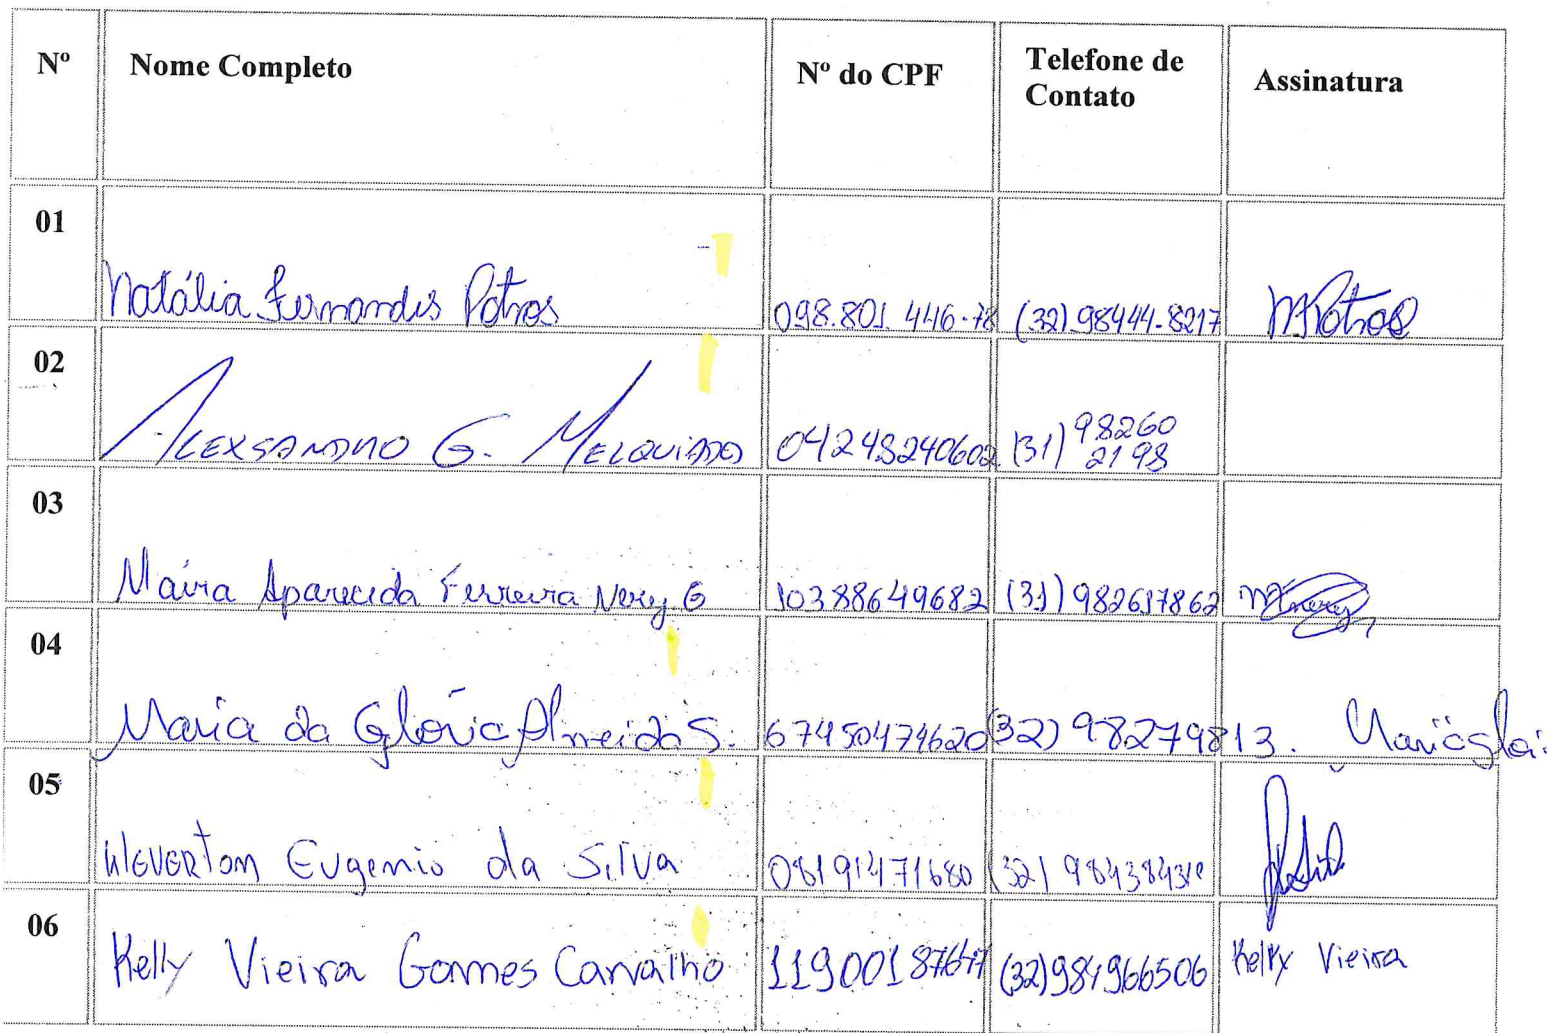 Nº Nome Completo Nº do CPF Telefone de Contato Assinatura
01 Natália Fernandes Potros 098.801.446-78 (32) 98444-8217 NPotros
02 Alexsandro G. Melquiades 04248240602 (31) 98260 2198
03 Maíra Aparecida Ferreira Nery G 10388649682 (31) 982617862
04 Maria da Glória Almeida S. 67450474620 (32) 98279813. Maria Gló:
05 Weverton Eugenio da Silva 08191471680 (32)
06 Kelly Vieira Gomes Carvalho (32) 984966506 Kelly Vieira